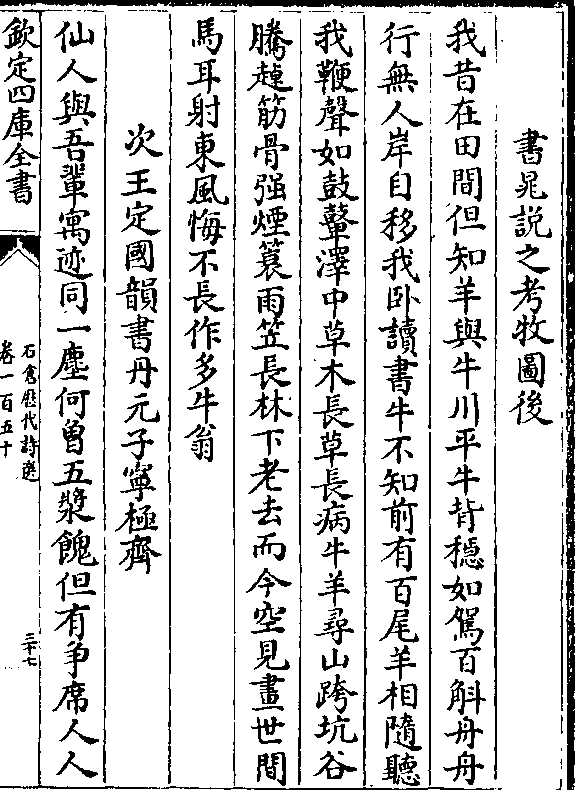 書晁説之考牧圖後
我昔在田間但知羊與牛川平牛背穩如駕百斛舟舟
行無人岸自移我卧讀書牛不知前有百尾羊相隨聽
我鞭聲如鼓鼙澤中草木長草長病牛羊尋山跨坑谷
騰趠筋骨强煙蓑雨笠長林下老去而今空見畫世間
馬耳射東風悔不長作多牛翁
次王定國韻書丹元子寧極齊
仙人與吾輩寓迹同一塵何曾五漿餽但有争席人人
欽定四庫全書
石倉歴代詩選
卷一百五十
三十七